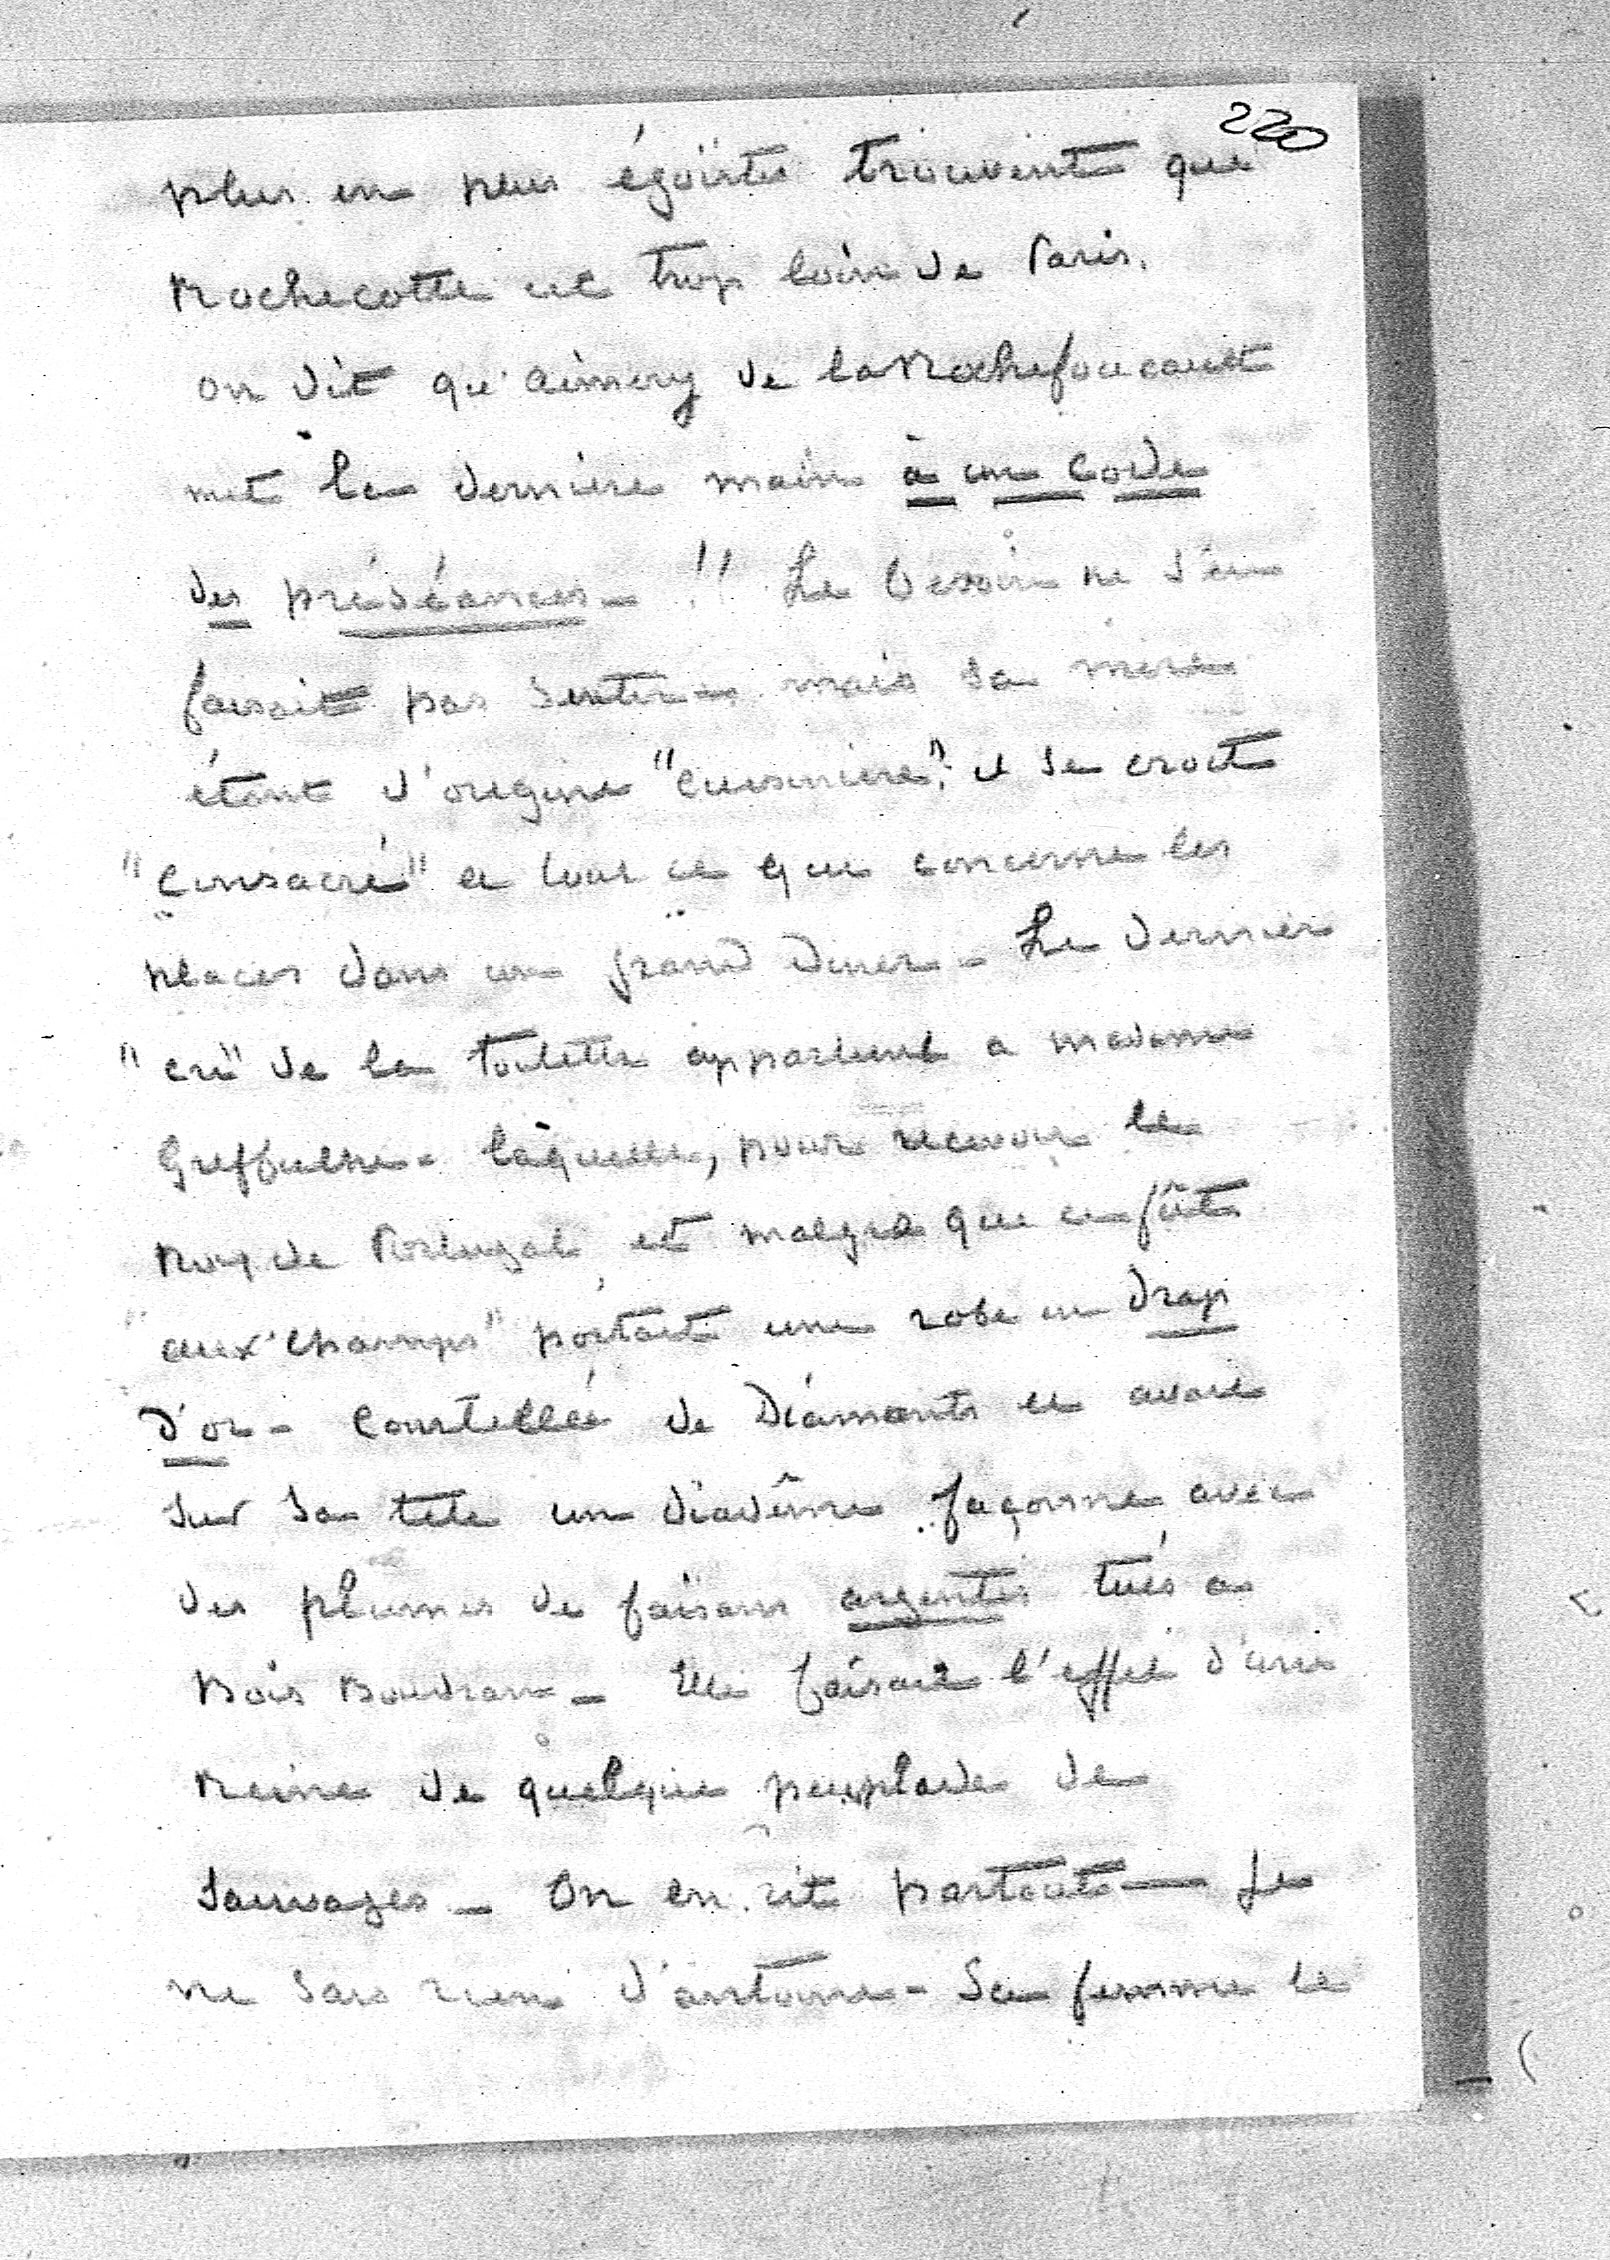 220
plus en plus égoïstes trouvent que
Rochecotte est trop loin de Paris.
on dit qu'Aimery de la Rochefoucault
met la dernière main à un Code
des préséances - !! Le besoin ne s'en
faisait pas sentir - mais sa mère
étant d'origine "cuisinière", il se croit
"consacré" à tout ce qui concerne les
places dans un grand diner - Le dernier
"cri" de la toilette appartient a madame
Greffulhe - laquelle, pour recevoir le
Roy de Portugal, et malgré que ce fût
"aux champs" portait une robe en drap
d'or - constellée de Diamants et avait
sur sa tete un diadême façonné avec
des plumes de faisans argentés tués a
Bois Boudran - Elle faisait l'effet d'une
Reine de quelque peuplade de
Sauvages - On en rit partout - Je
ne sais rien d'antoine - Sa femme le